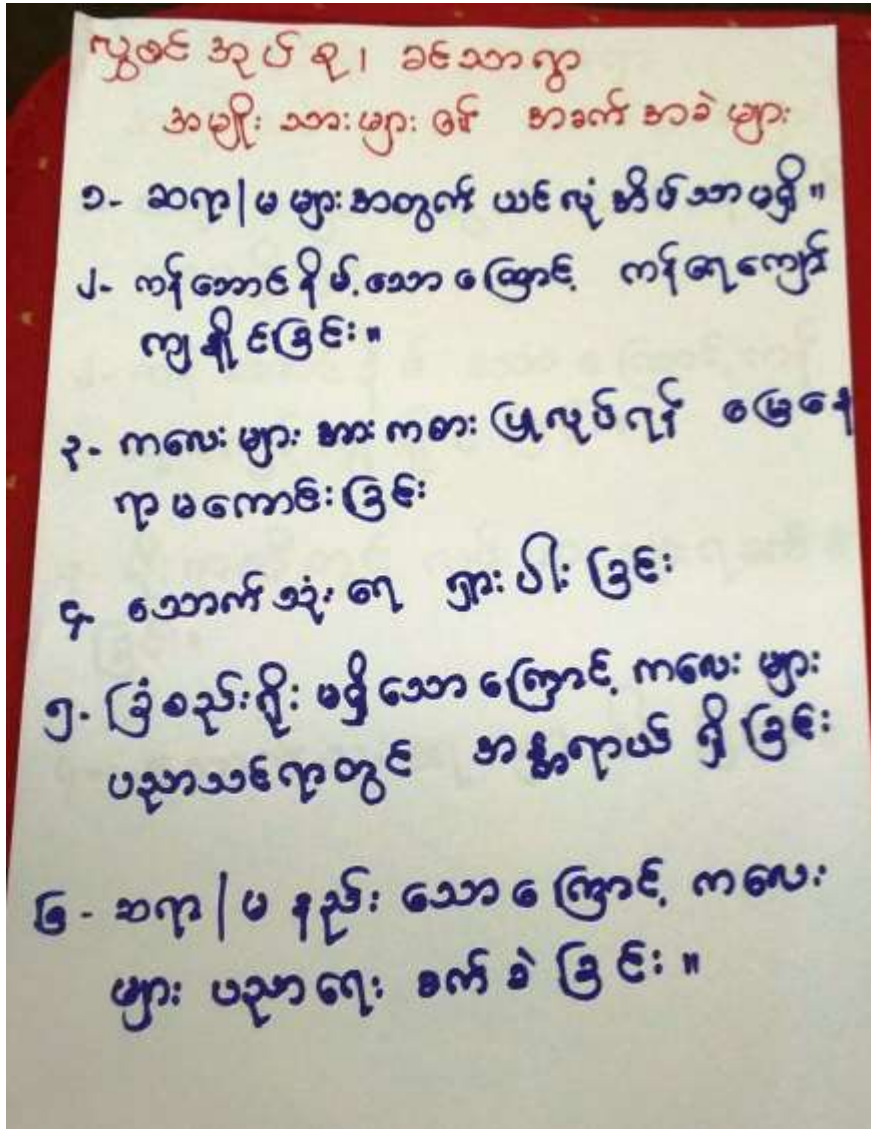 လွှဖင်အုပ်စု၊ ခင်သာရွာ
အမျိုးသားများ၏ အခက်အခဲများ
၁- ဆရာ/မ များအတွက် ယင်လုံအိမ်သာမရှိ။
၂- ကန်ဘောင်နိမ့်သောကြောင့် ကန်ရေကျော်
ကျနိုင်ခြင်း။
၃- ကလေးများ အားကစား ပြုလုပ်ရန် မြေနေ
ရာမကောင်းခြင်း
၄- သောက်သုံးရေ ရှားပါးခြင်း
၅- ခြံစည်းရိုး မရှိသောကြောင့် ကလေးများ
ပညာသင်ရာတွင် အန္တရာယ် ရှိခြင်း
၆- ဆရာ/မ နည်းသောကြောင့် ကလေး
များ ပညာရေး ခက်ခဲခြင်း။